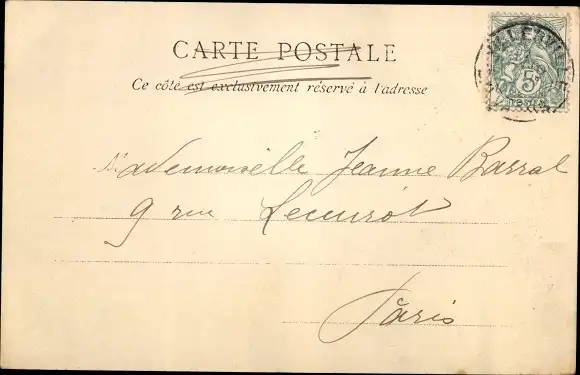 CARTE POSTALE
Ce côté est exclusivement réservé à l'adresse
5
Mademoiselle Jeanne Barral
9 rue
Paris